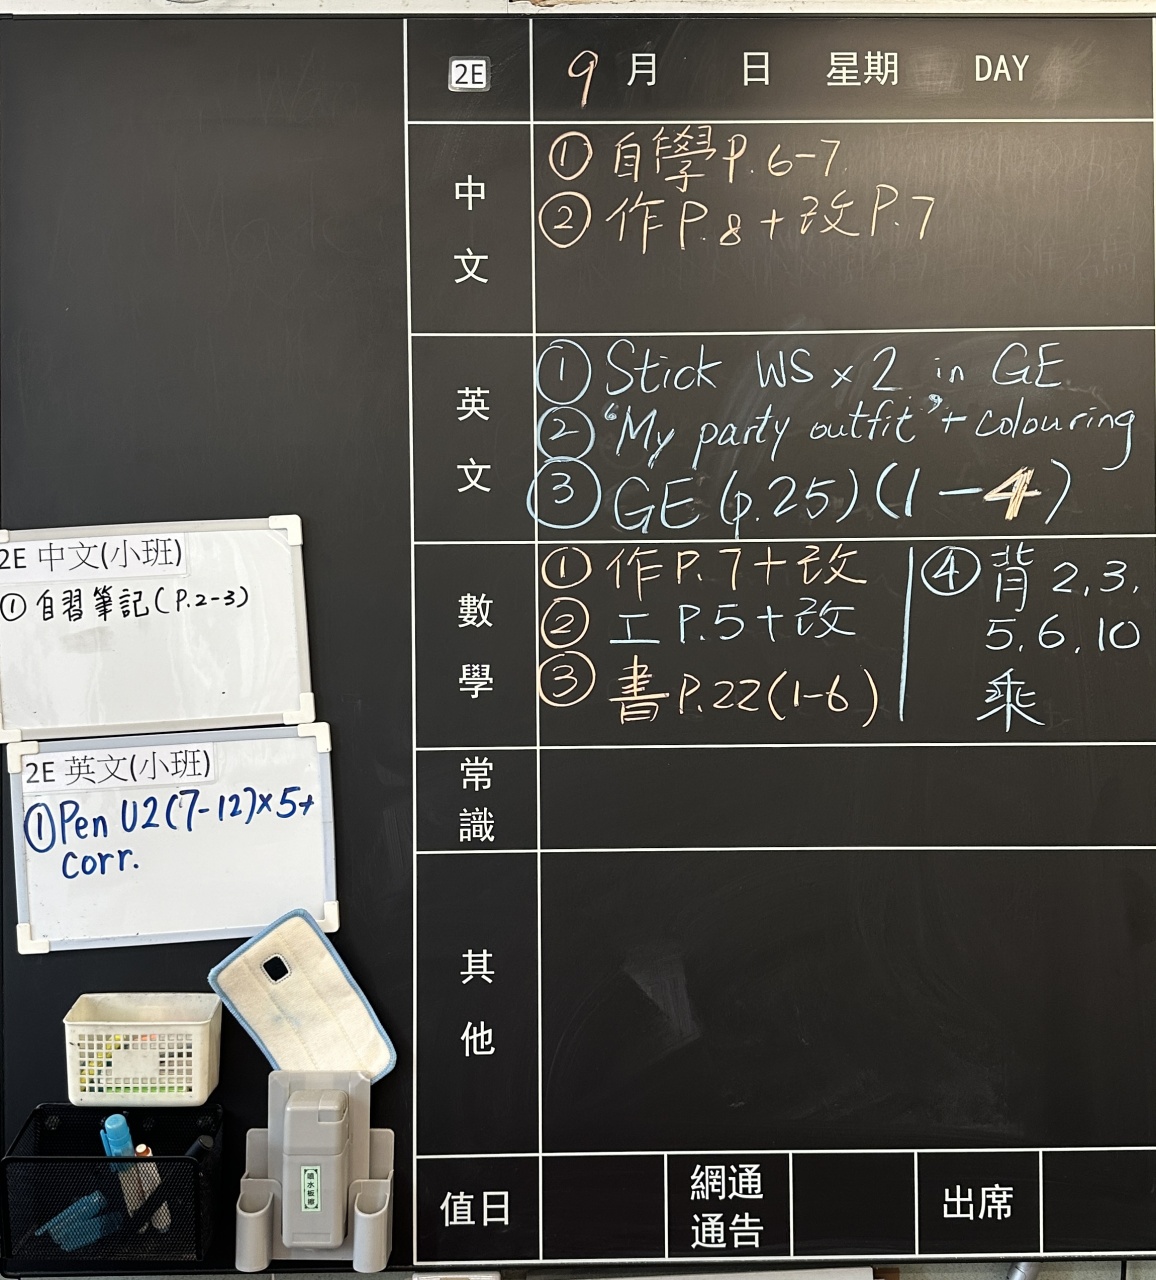 2E 9月 日 星期 DAY
中文
① 自學P.6-7
② 作P.8+改P.7
英文
① Stick WS x 2 in GE
② "My party outfit" + colouring
③ GE (p.25)(1-4)
數學
① 作P.7+改
② 工P.5+改
③ 書P.22(1-6)
④ 背 2,3,
5,6,10
乘
常識
其他
值日
網通
通告
出席
2E 中文(小班)
① 自習筆記(P.2-3)
2E 英文(小班)
① Pen U2(7-12)x5+
corr.